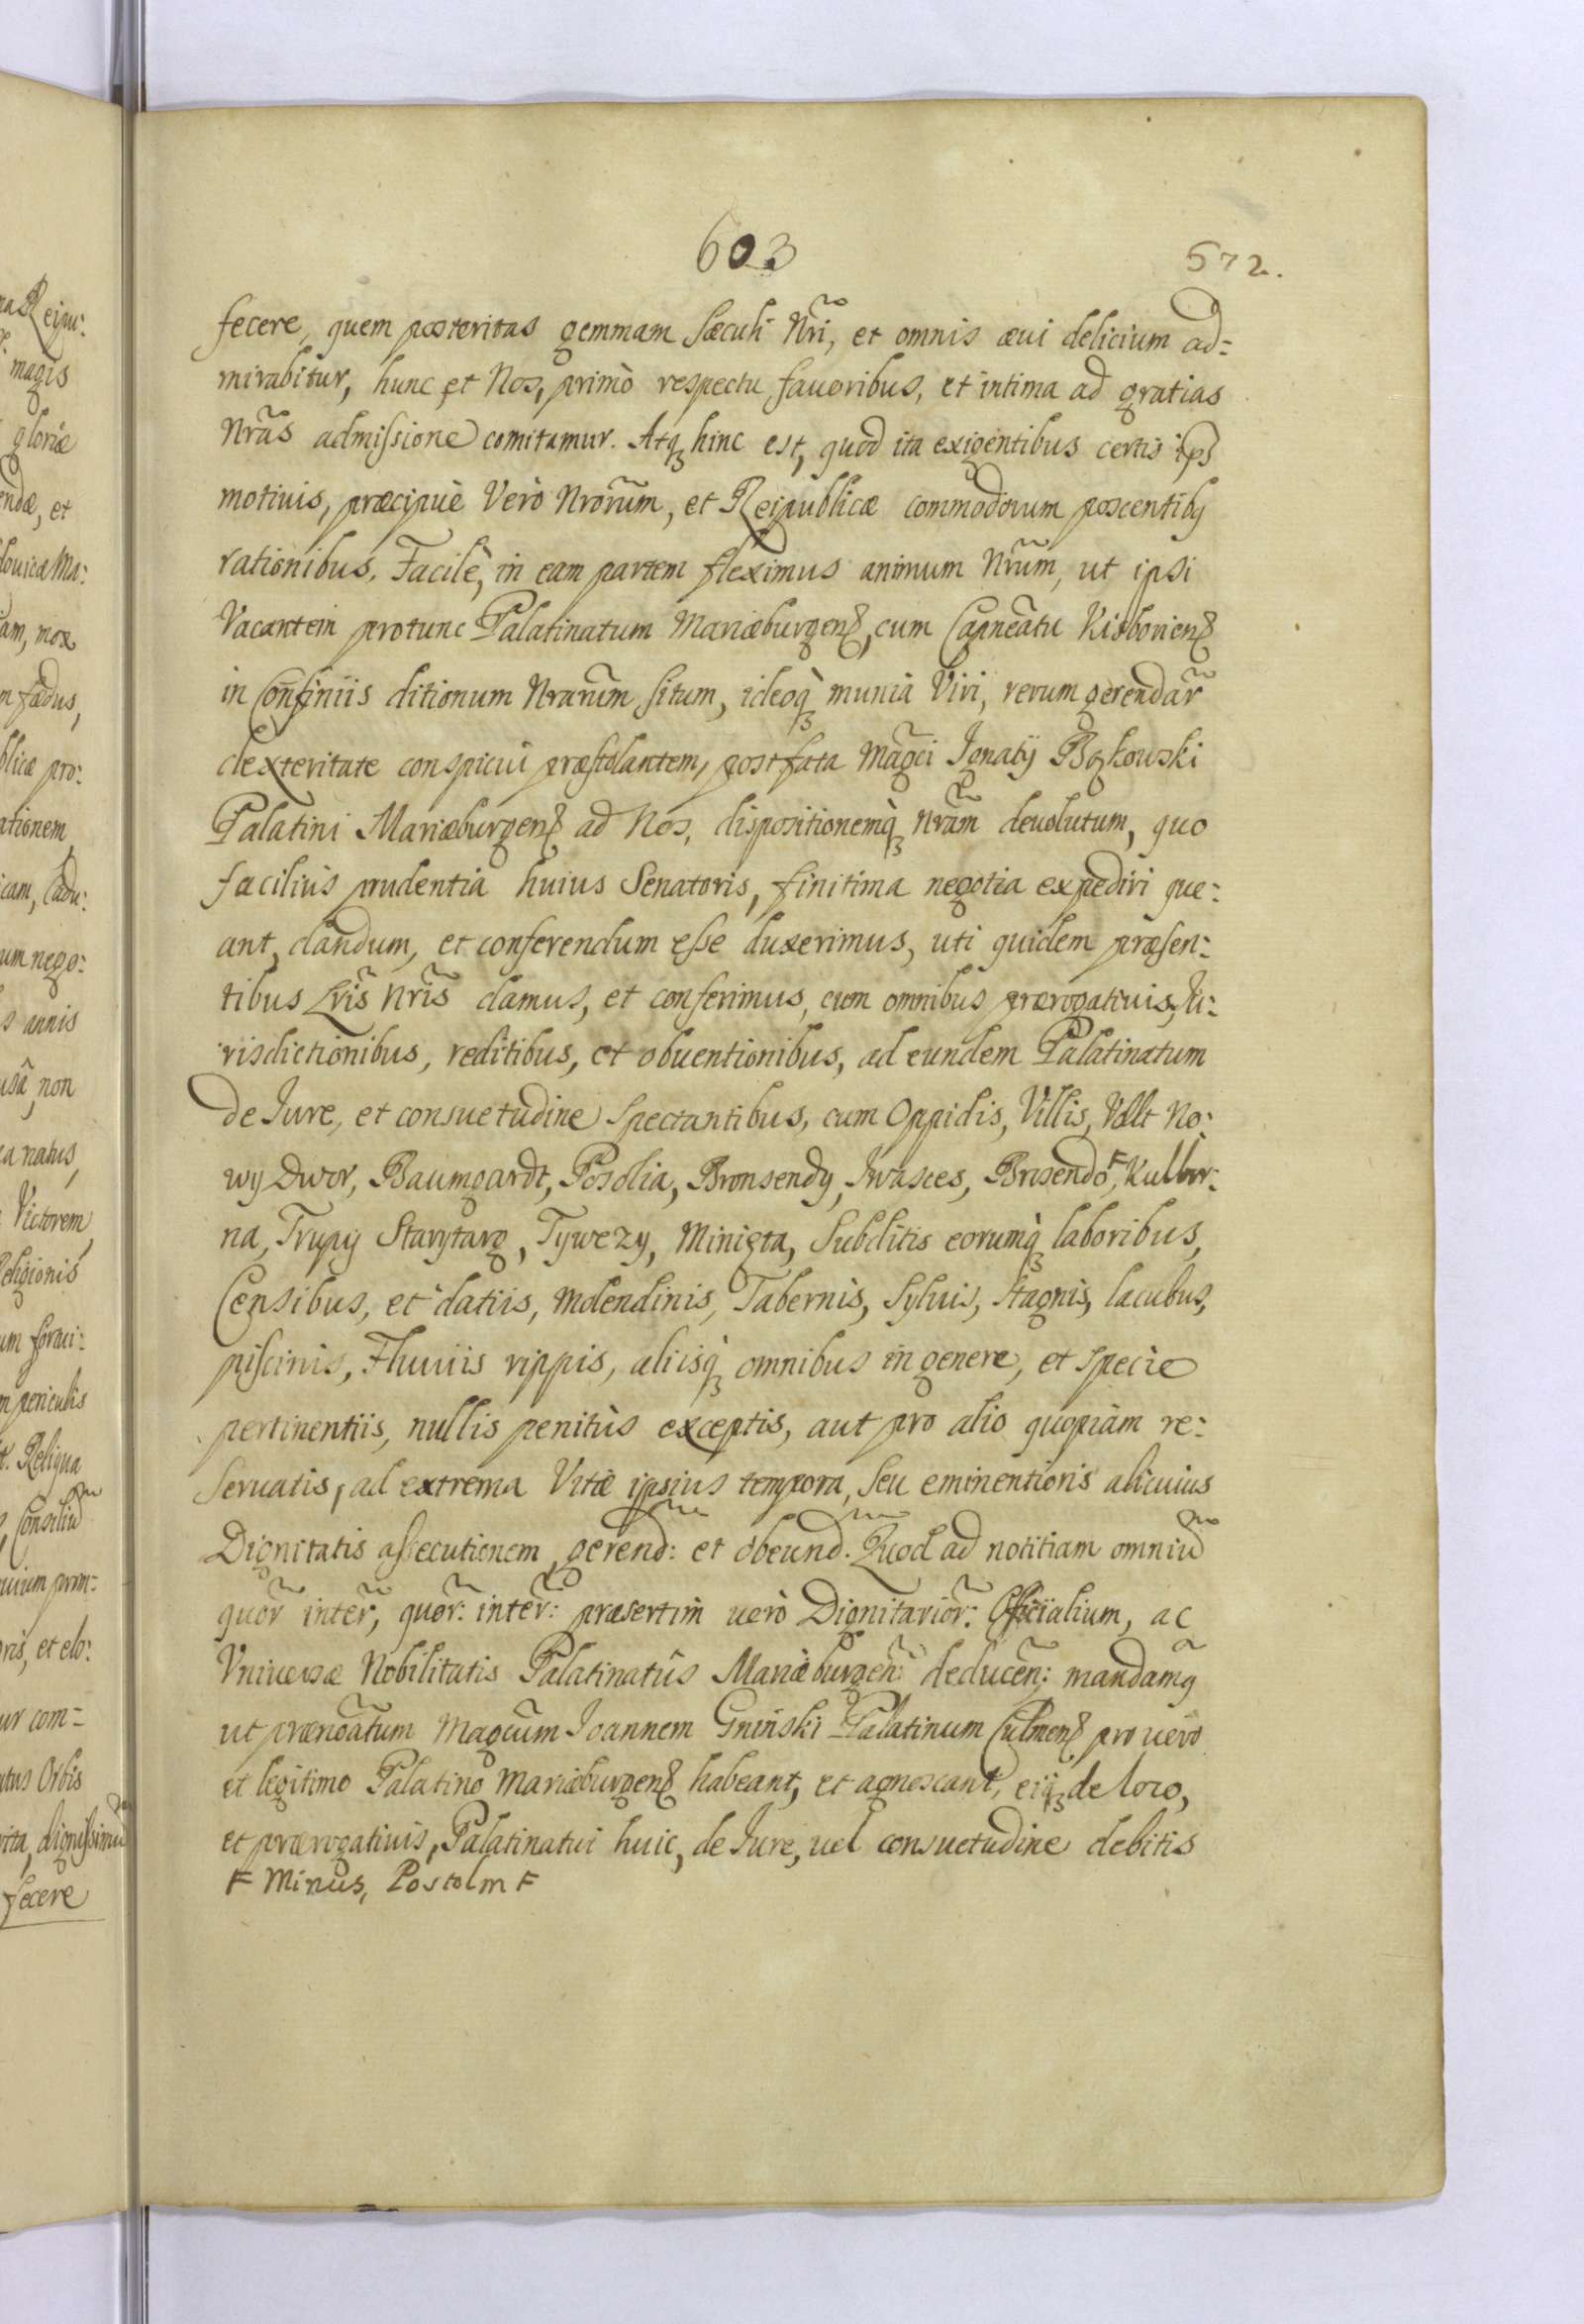 603
572.
fecere, quem posteritas gemmam sæculi Nr̃i, et omnis æui delicium ad=
mirabitur, hunc et Nos, primò respectu fauoribus, et intima ad gratias
Nr̃as admissione comitamur. Atq₃ hinc est, quod ita exigentibus certis ips
motiuis, præcipuè Verò Nror̃um, et Reipublicæ commodorum poscentibꝰ
rationibus. Facilè, in eam partem fleximus animum Nr̃um, ut ipsi
Vacantem protunc Palatinatum Mariæburgens, cum Capñeatu Kisboriens
in Confiniis ditionum Nrarum situm, ideoq₃ munia Viri, rerum gerendar̃
dexteritate conspicui præstolantem, post fata Mag̃ci Ignatÿ Bąkowski
Palatini Mariæburgens ad Nos, dispositionemq₃ nr̃am deuolutum, quo
facilius prudentia huius Senatoris, finitima negotia expediri que:
ant, dandum, et conferendum esse duxerimus, uti quidem præsen:
tibus Lr̃is Nr̃is damus, et conferimus, cum omnibus prærogatiuis, Iu:
risdictionibus, reditibus, et obuentionibus, ad eundem Palatinatum
de Iure, et consuetudine spectantibus, cum Oppidis, Villis, Vdlt No:
wy Dwor, Baumgardt, Posolia, Bronsendy, Iwasces, Brosendo, ꟻ Kulbor:
na, Trupy Starytarg, Tywezy, Minięta, Subditis eorumq₃ laboribus,
Censibus, et datiis, Molendinis, Tabernis, Syluis, Stagnis, lacubus,
piscinis, Fluuiis rippis, aliisq₃ omnibus in genere, et specie
pertinentiis, nullis penitùs exceptis, aut pro alio quopiam re:
seruatis, ad extrema Vitæ ipsius tempora, seu eminentioris alicuius
Dignitatis assecutionem, gerend̃: et obeund̃. Quod ad notitiam omniũ
quor̃ inter̃, quor̃: inter̃: præsertim uerò Dignitarior̃: Officialium, ac
Vniuersæ Nobilitatis Palatinatûs Mariæburgen̄: deducen̄: mandam̃ꝰ
ut prænoãtum Magcum Ioannem Gniński Palatinum Culmens pro uero
et legitimo Palatino Mariæburgens habeant, et agnoscant, eiq₃ de loco,
et prærogatiuis, Palatinatui huic, de Iure, uel consuetudine debitis
ꟻ Minus, Postolm ꟻ